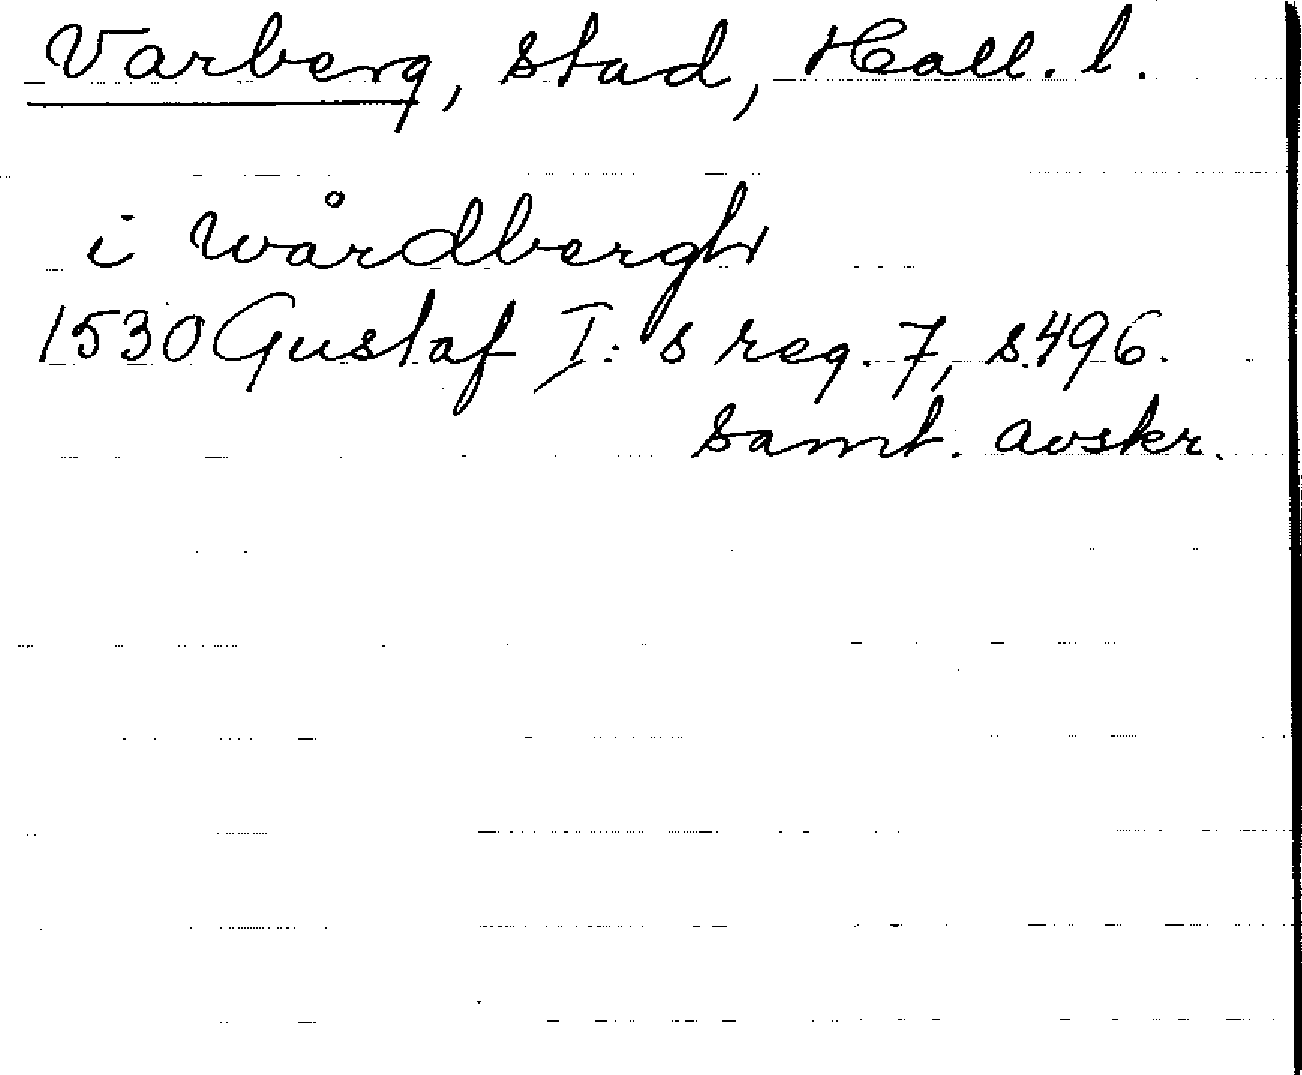 Varberg, stad, Hall. l.
i Wårdbergh
1530 Gustaf I: s reg. 7, s. 496.
Samt. avskr.